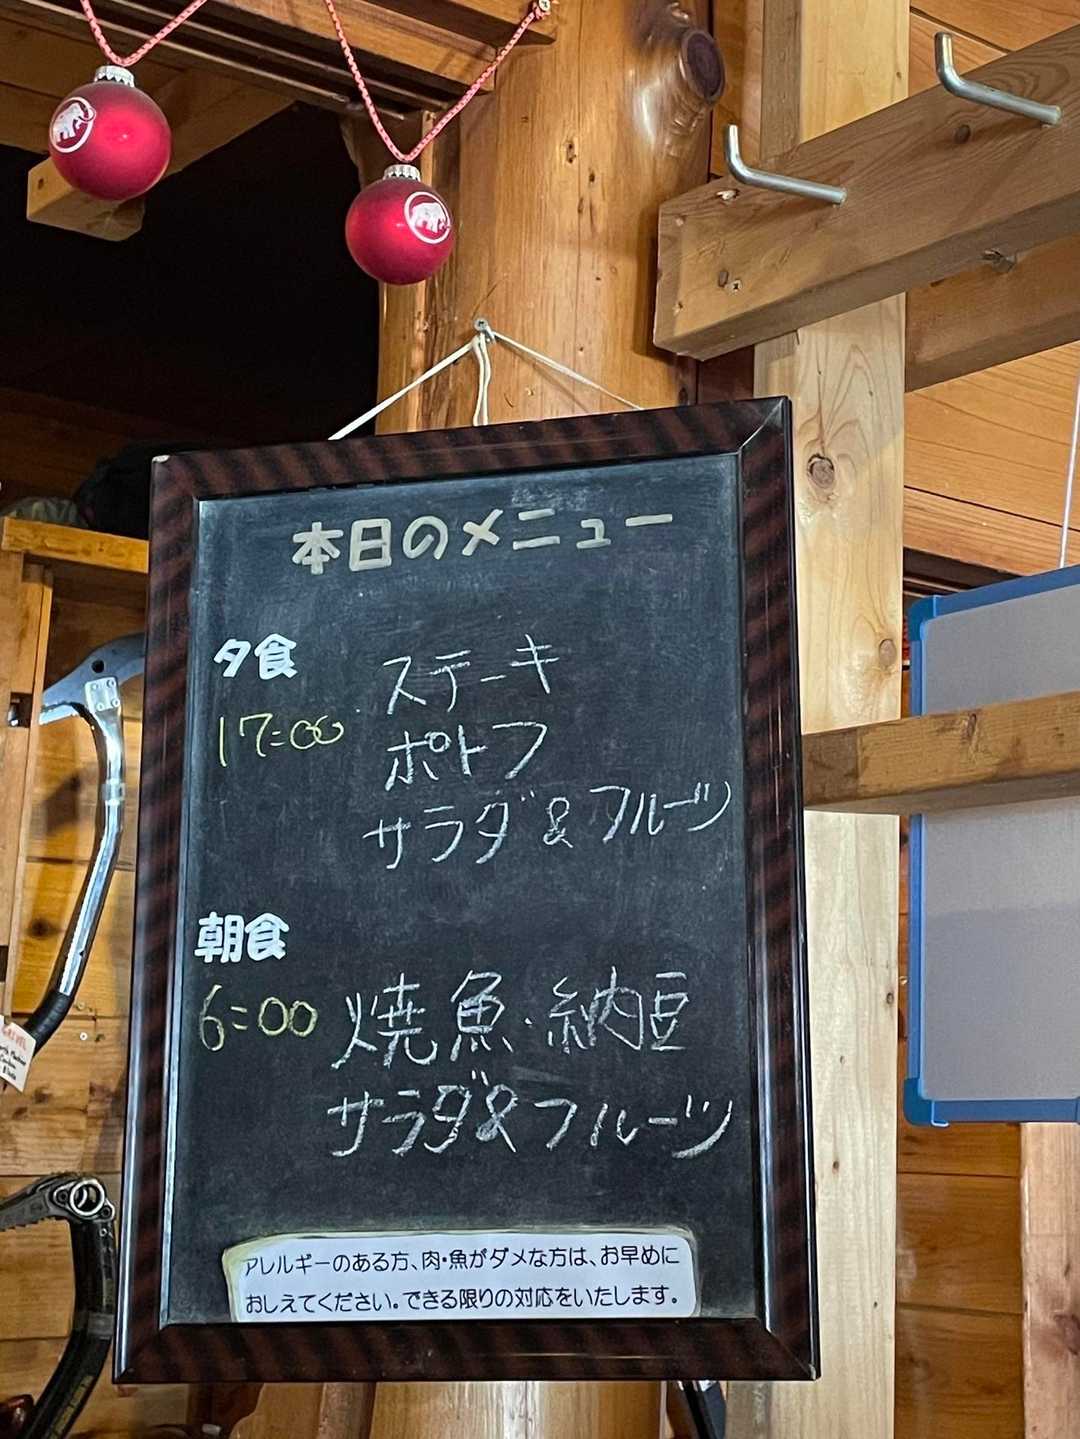 本日のメニュー
夕食
17:00
ステーキ
ポトフ
サラダ&フルーツ
朝食
6:00
焼魚・納豆
サラダ&フルーツ
アレルギーのある方、肉・魚がダメな方は、お早めに
おしえてください。できる限りの対応をいたします。